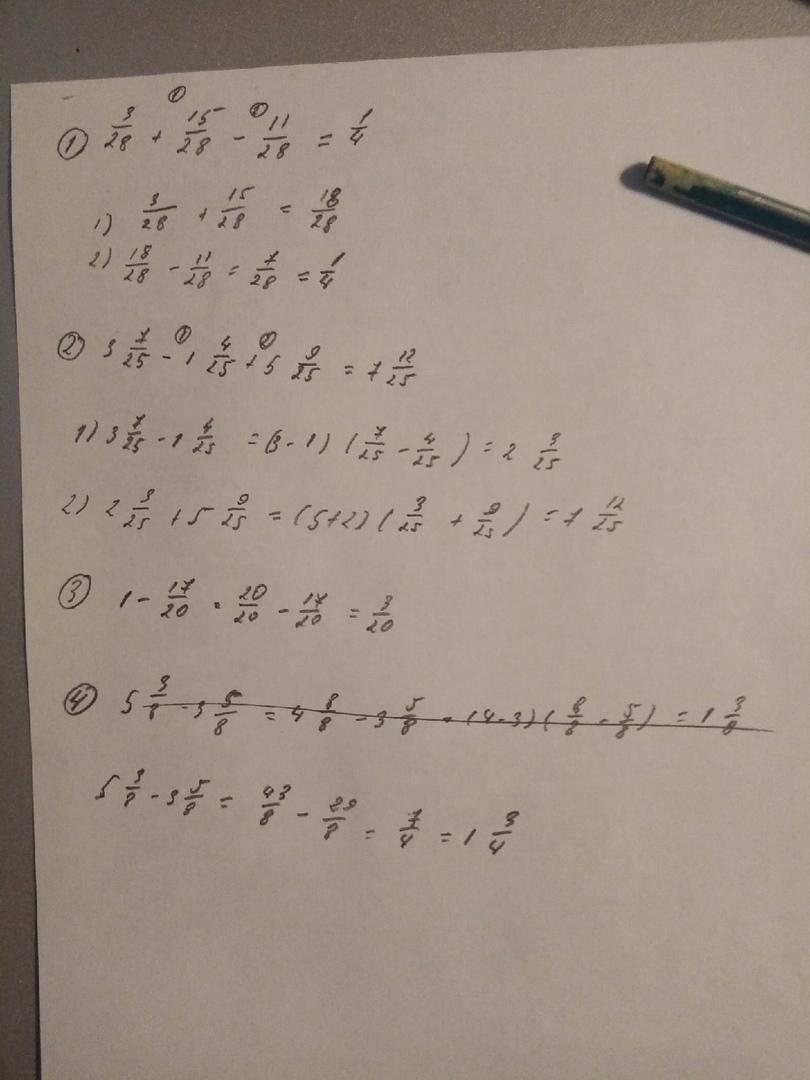 ① 3/28 +① 15/28 -② 11/28 = 1/4
1) 3/28 + 15/28 = 18/28
2) 18/28 - 11/28 = 7/28 = 1/4
② 3 7/25 -① 1 4/25 +② 5 9/25 = 7 12/25
1) 3 7/25 - 1 4/25 = (3 - 1) (7/25 - 4/25) = 2 3/25
2) 2 3/25 + 5 9/25 = (5+2) (3/25 + 9/25) = 7 12/25
③ 1 - 17/20 = 20/20 - 17/20 = 3/20
④ 5 3/8 - 3 5/8 = 4 8/8 - 3 5/8 = (4-3) (8/8 - 5/8) = 1 3/8
5 3/8 - 3 5/8 = 43/8 - 29/8 = 7/4 = 1 3/4